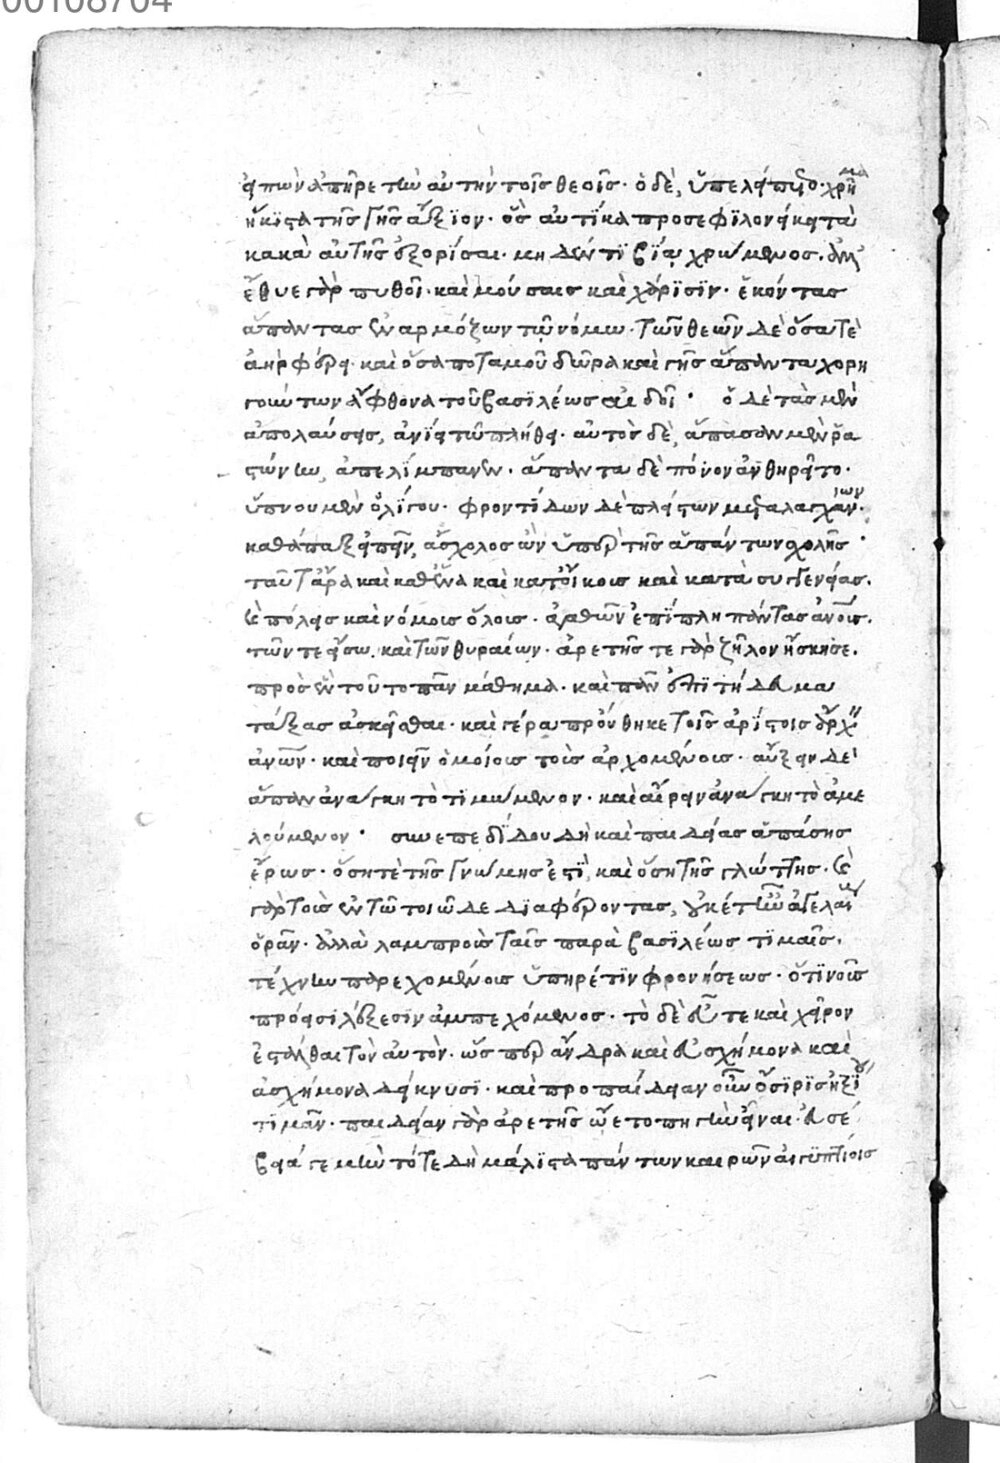 00108704
εἰπὼν ἀπῆρε τὼ αὐτὴν τοῖς θεοῖς· ὁ δὲ, ὑπελείπετο· χρῆμα
ἥκιστα τῆς γῆς ἄξιον· ὃς αὐτίκα προσεφιλονείκει τὰ
κακὰ αὐτῆς ἐξορίσαι· μηδέν τι βίᾳ χρώμενος· ἀλλ'
ἔθυε γὰρ πειθοῖ· καὶ μούσαις καὶ χάρισιν· ἑκόντας
ἅπαντας ἐναρμόζων τῷ νόμῳ· τῶν θεῶν δὲ ὅσα τε
ἀὴρ φέρει· καὶ ὅσα ποταμοῦ δῶρα καὶ γῆς ἅπαντα χορη
γούντων ἄφθονα τοῦ βασιλέως ἀεὶ δοῖ· ὁ δὲ τὰς μὲν
ἀπολαύσεις, ἀνίει τῷ πλήθει· αὐτὸς δὲ, ἅπασαν μὲν ῥα
στώνην, ἀπελίμπανεν· ἅπαντα δὲ πόνον ἀνθῃρεῖτο·
ὕπνου μὲν ὀλίγου· φροντίδων δὲ πλείστων μεταλαγχάνων·
καθάπαξ εἰπεῖν, ἄσχολος ὢν ὑπὲρ τῆς ἁπάντων σχολῆς·
ταῦτ' ἄρα καὶ καθ' ἕνα καὶ κατ' οἴκους καὶ κατὰ συγγενείας·
καὶ πόλεις καὶ νόμοις ὅλοις· ἀγαθῶν ἐπίπλη πάντας ἀνθρώποις·
τῶν τε εἴσω καὶ τῶν θυραίων· ἀρετῆς τε γὰρ ζῆλον ἤσκησε·
πρὸς ὃν τοῦτο πᾶν μάθημα· καὶ πᾶν ἐπιτήδευμα
τάξας ἀσκεῖσθαι· καὶ γέρα προύθηκε τοῖς ἀρίστοις ἄρχειν
ἀνθρώπων· καὶ ποιεῖν ὁμοίοις τοῖς ἀρχομένοις· αὔξειν δὲ
ἅπαν ἀνάγκη τὸ τιμώμενον· καὶ αἴρειν ἀνάγκη τὸ ἀμε
λούμενον· συνεπεδίδου δὴ καὶ παιδείας ἁπάσης
ἔρως· ὅση τε τῆς γνώμης ἐστὶ, καὶ ὅση τῆς γλώττης· καὶ
γὰρ τοὺς ἐν τῷ τοιῷδε διαφέροντας, οὐκέτ' ἦν ἀγελαίους
ὁρᾶν· ἀλλὰ λαμπροὺς ταῖς παρὰ βασιλέως τιμαῖς·
τέχνην παρεχομένοις ὑπηρέτιν φρονήσεως· ὅτι νοῦς
πρόεισι λέξεσιν ἀμπεχόμενος· τὸ δὲ εὖ τε καὶ χεῖρον
ἐστάλθαι τὸν αὐτὸν· ὥσπερ ἄνδρα καὶ εὐσχήμονα καὶ
ἀσχήμονα δείκνυσι· καὶ προπαίδειαν οὖν ὄσιρις ἠξίου
τιμᾶν· παιδείαν γὰρ ἀρετῆς ᾤετο πηγὴν εἶναι· εὐσέ
βειά γε μὴν τότε δὴ μάλιστα πάντων καιρῶν αἰγυπτίοις